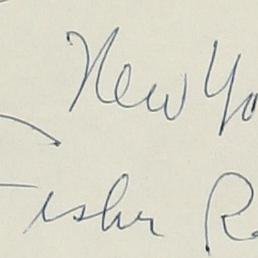 New Yo
Fisher R